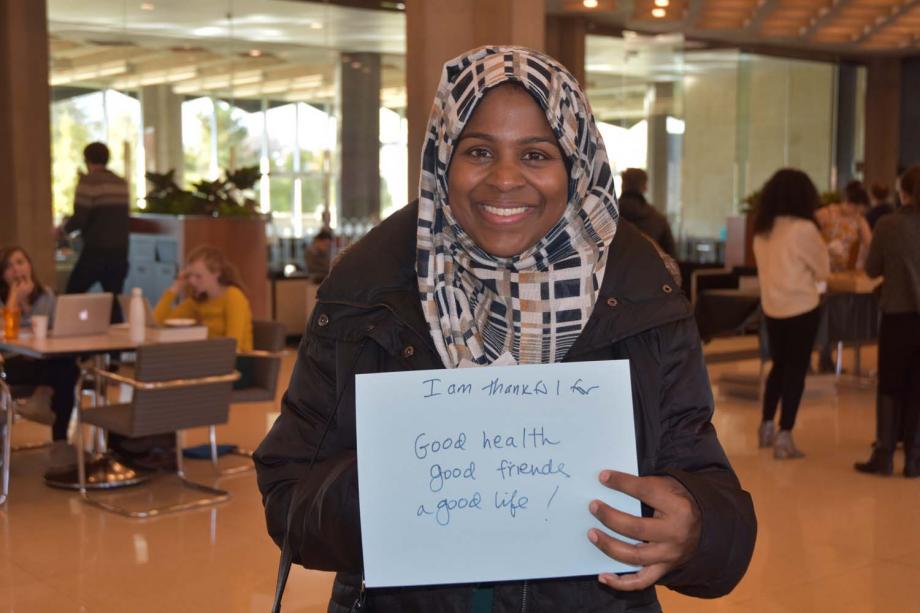 I am thankful for
Good health
good friends
a good life!